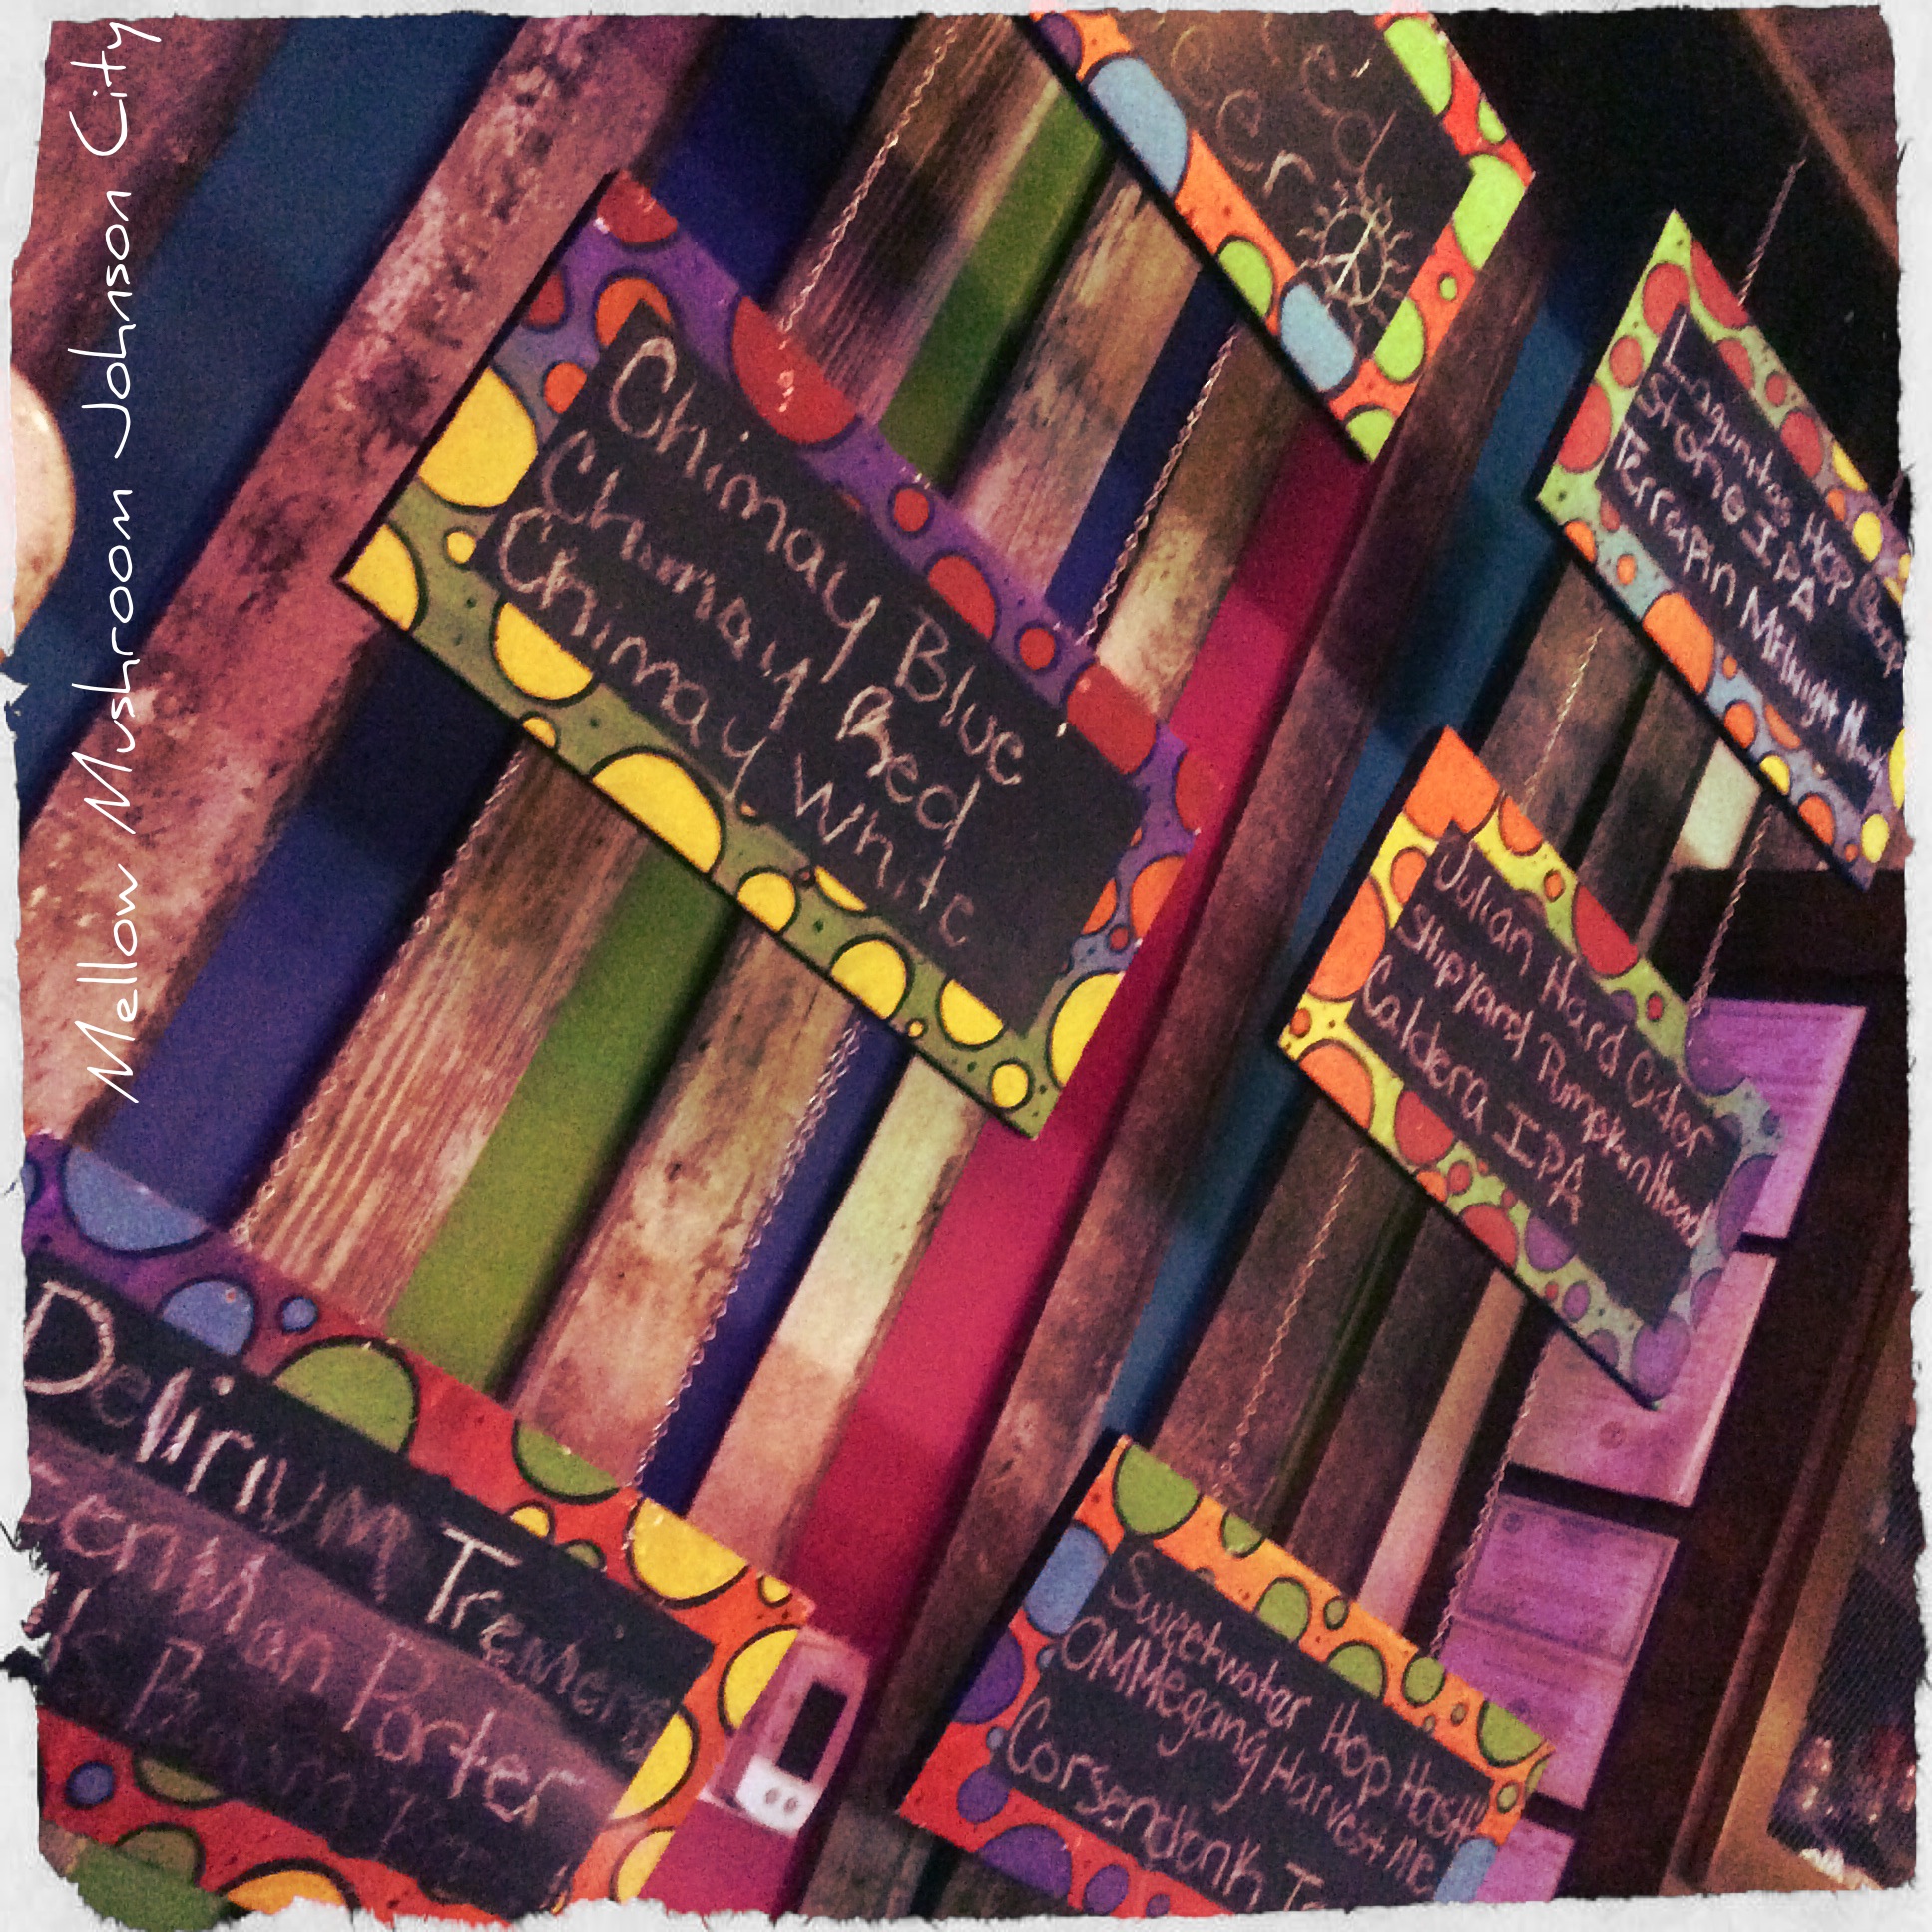 Melllow Mushroom Johnson City
Chimay Blue
Chimay Red
Chimay White
Lagunitas Hop
Stone IPA
Terrapin
Julian Hard Cider
Shipyard Pumpkin Head
Caldera IPA
Delirium Tremens
Porter
Sweetwater Hop Hash
OMMegang Harvest Ale
Corsendonk